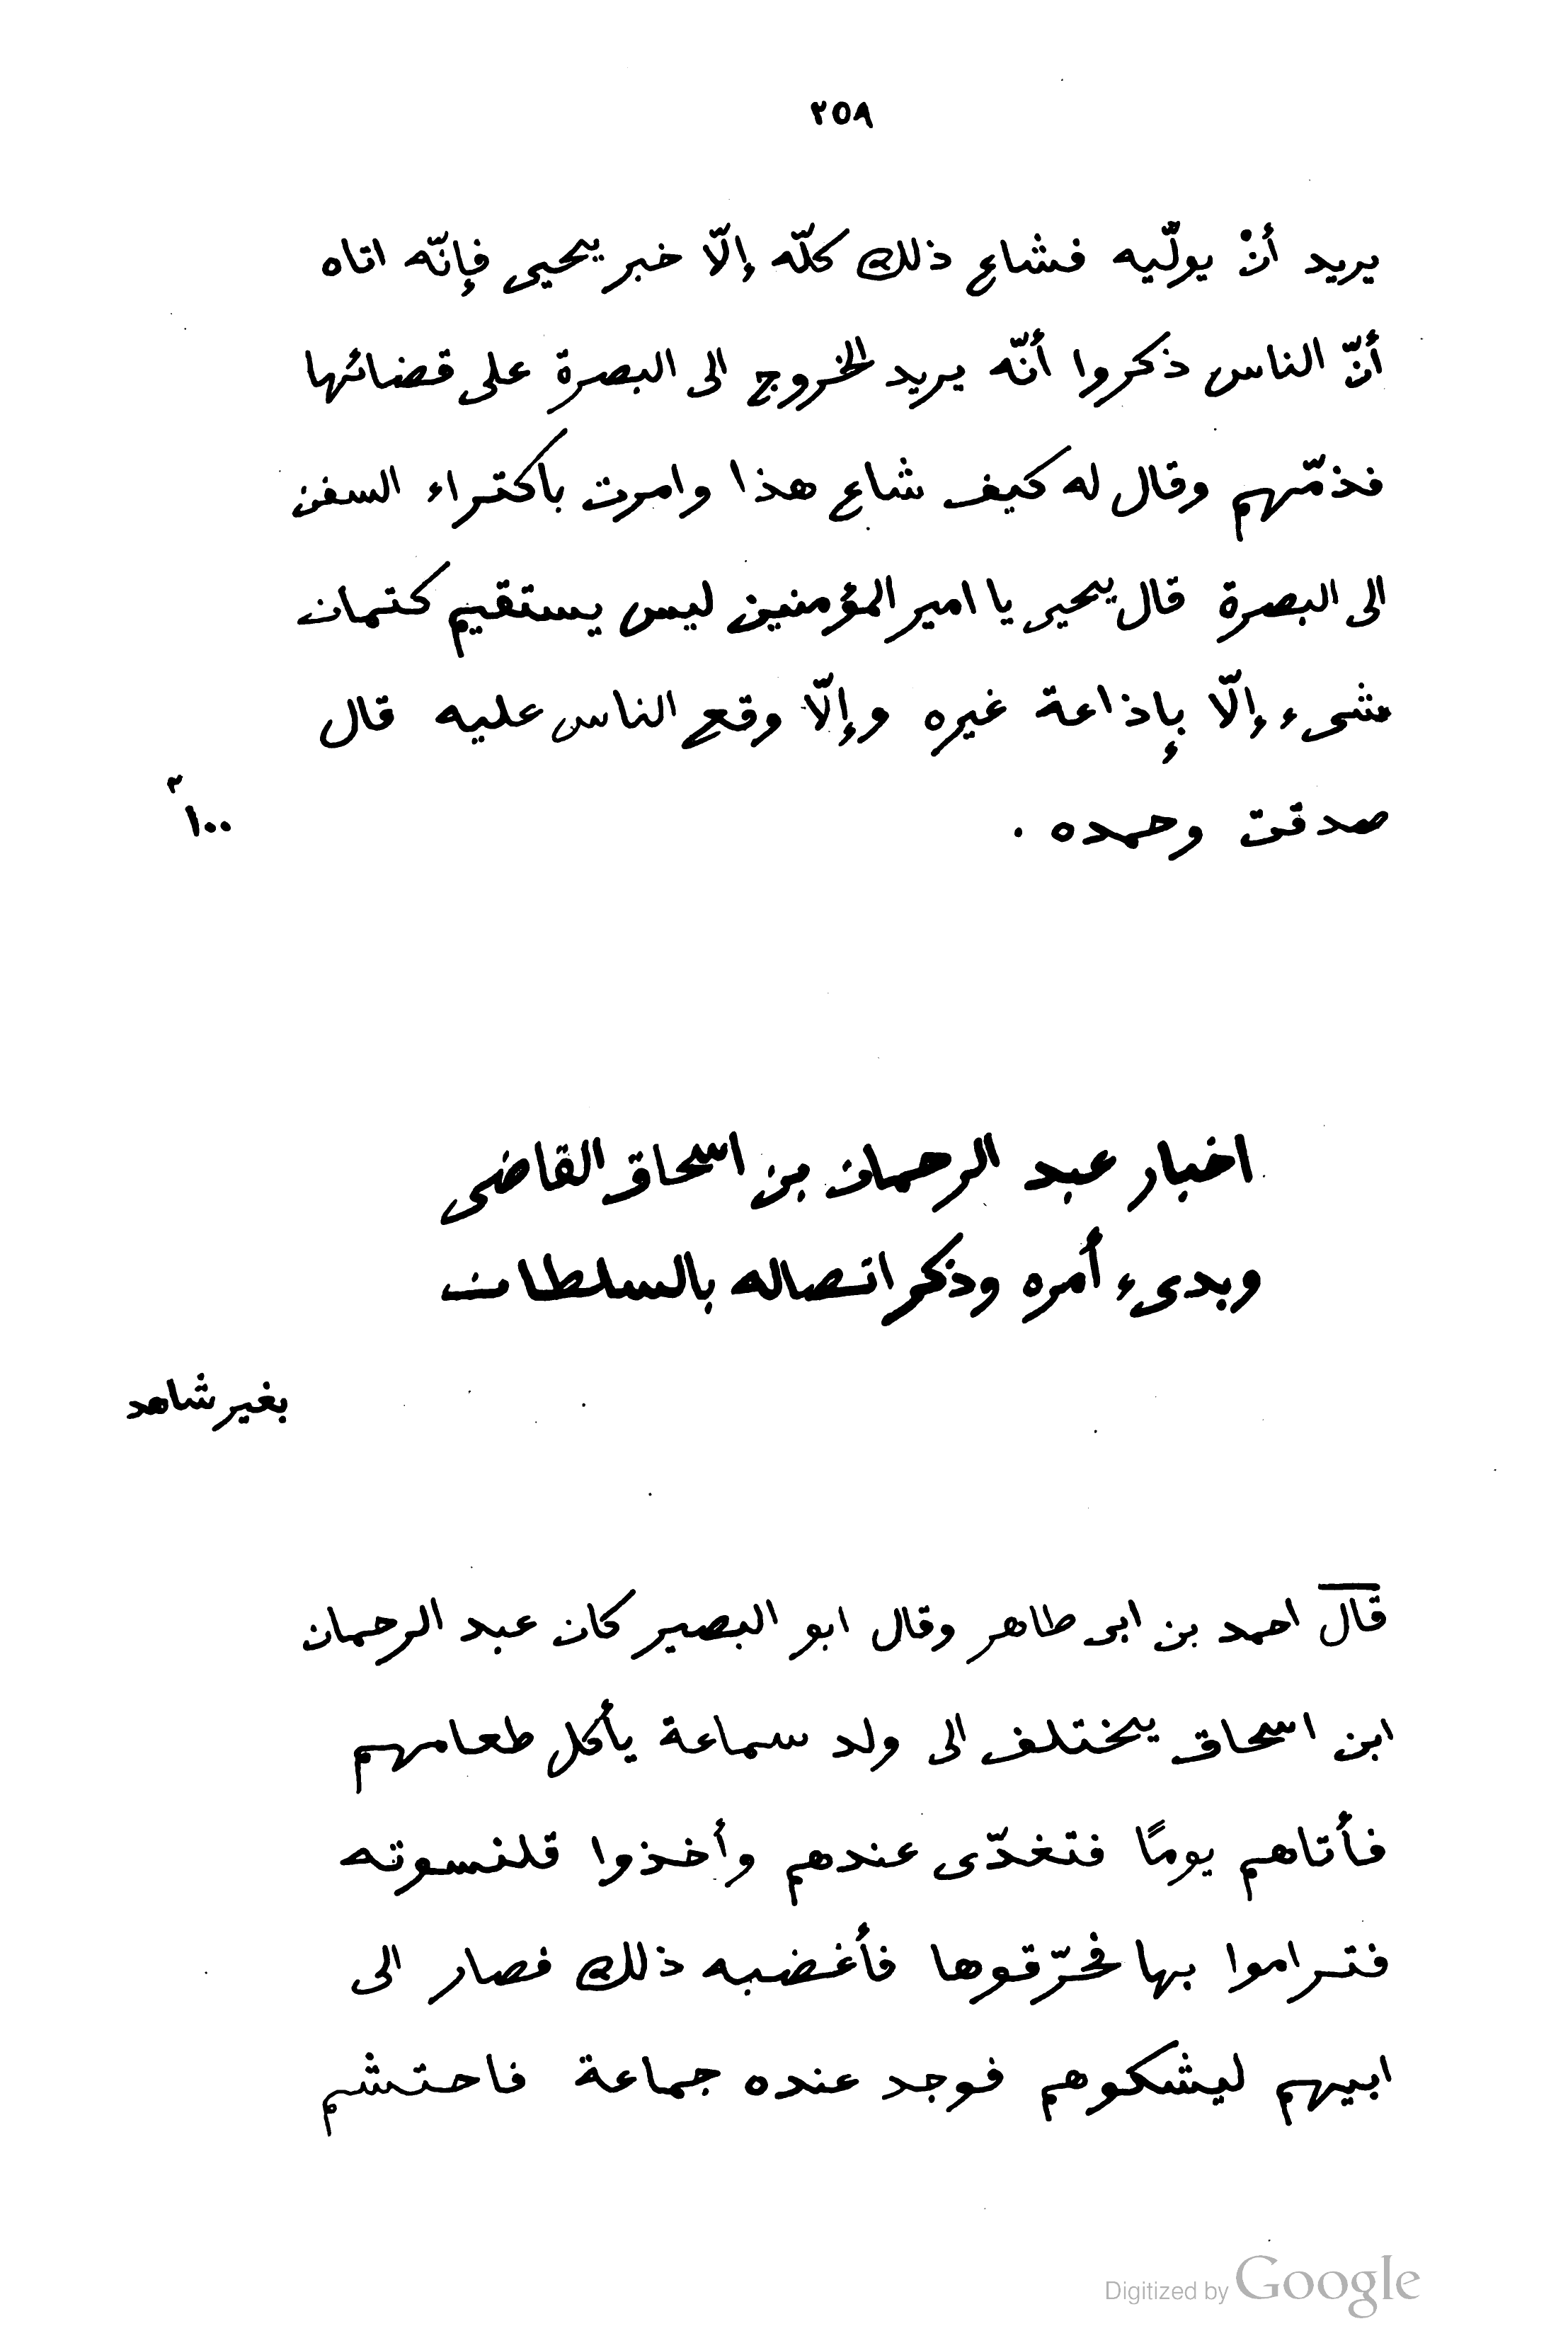 ٢٥٨
يريد أنْ يولّيه فشاع ذلك كلّه إلّا خبر يحيى فإنّه اتاه
أنّ الناس ذكروا أنّه يريد الخروج الى البصرة على قضائها
فذمّهم وقال له كيف شاع هذا وامرت باكتراء السفن
الى البصرة قال يحيى يا امير المؤمنين ليس يستقيم كتمان
شىء إلّا بإذاعة غيره وإلّا وقع الناس عليه قال
صدقت وحمده .
اخبار عبد الرحمان بن اسحاق القاضى
وبدىء أمره وذكر اتصاله بالسلطان
بغير شاهد
قال احمد بن ابى طاهر وقال ابو البصير كان عبد الرحمان
ابن اسحاق يختلف الى ولد سماعة يأكل طعامهم
فأتاهم يومًا فتغدّى عندهم وأخذوا قلنسوته
فتراموا بها فخرّقوها فأغضبه ذلك فصار الى
ابيهم ليشكوهم فوجد عنده جماعة فاحتشم
Digitized by Google